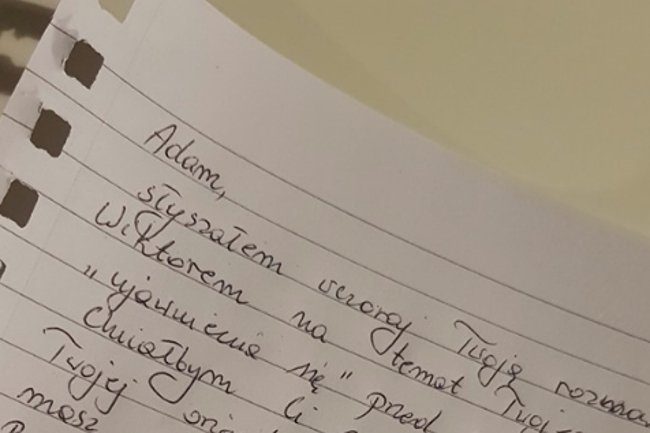 Adam,
słyszałem wczoraj Twoją
Wiktorem na temat
„ujawnienia się" przed
chciałbym Ci
Twojej
masz